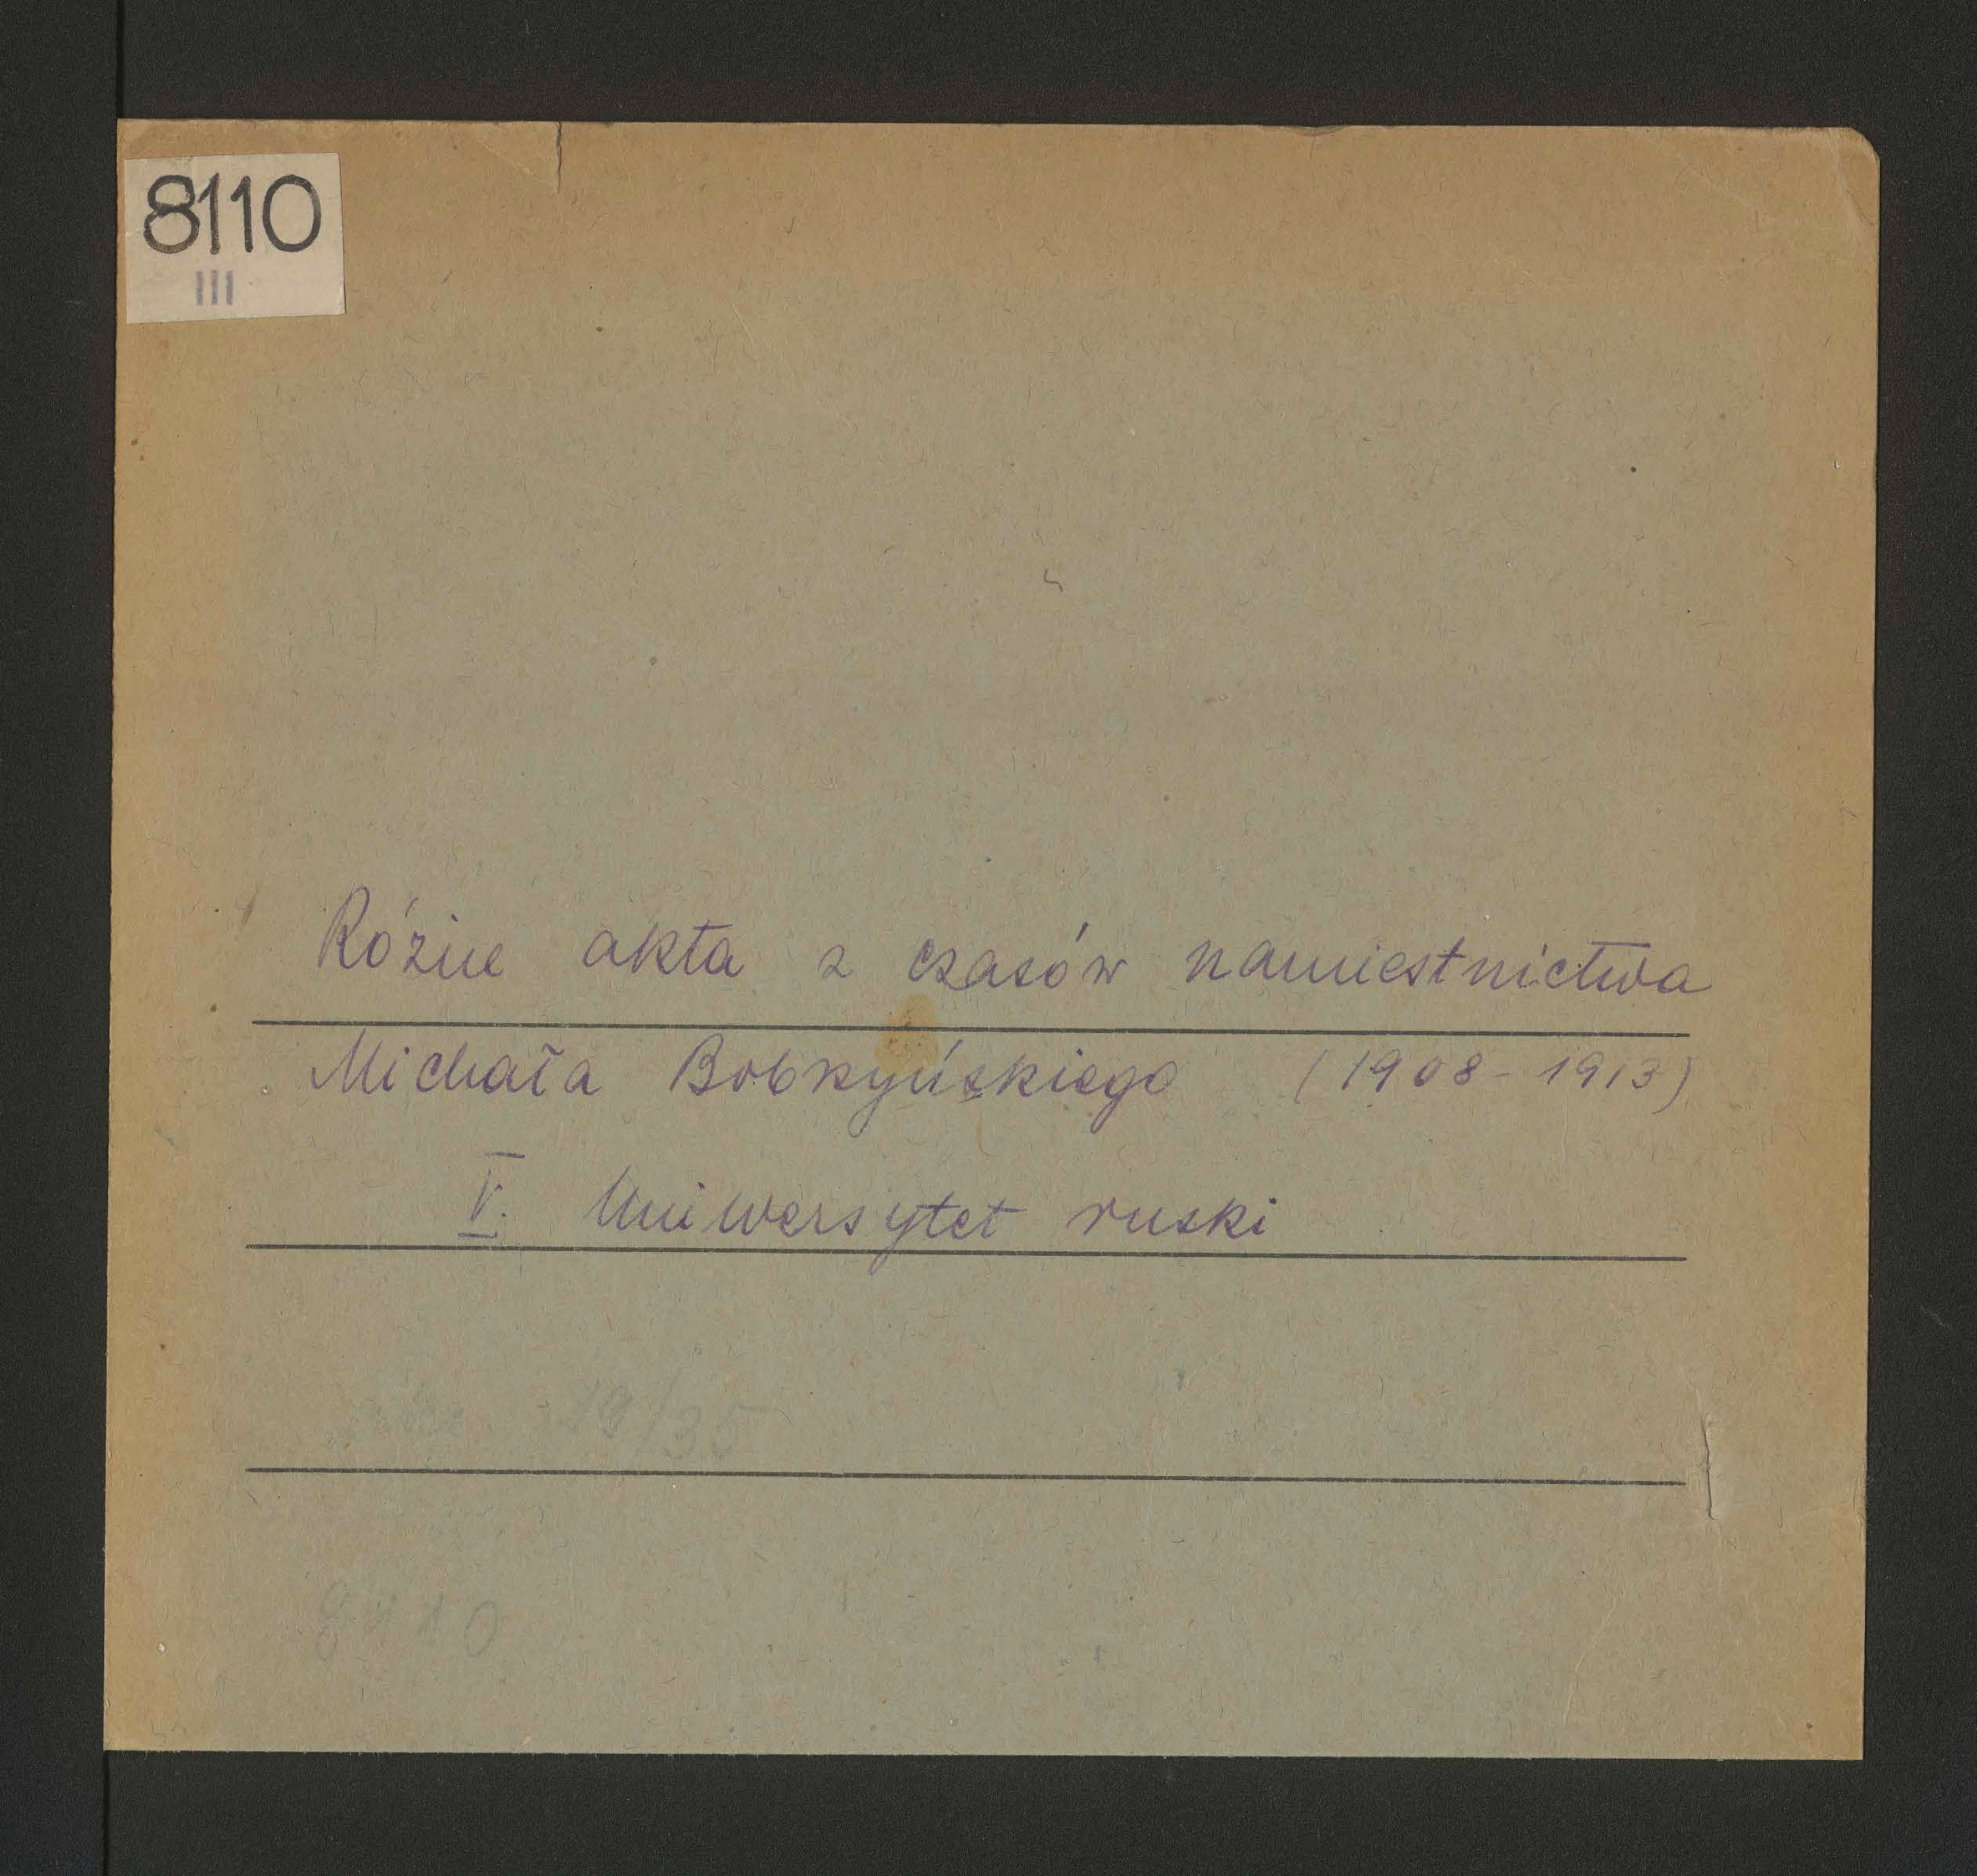 8110
III
Różne akta z czasów namiestnictwa
Michała Bobrzyńskiego (1908-1913)
V. Uniwersytet ruski
19/35
8110